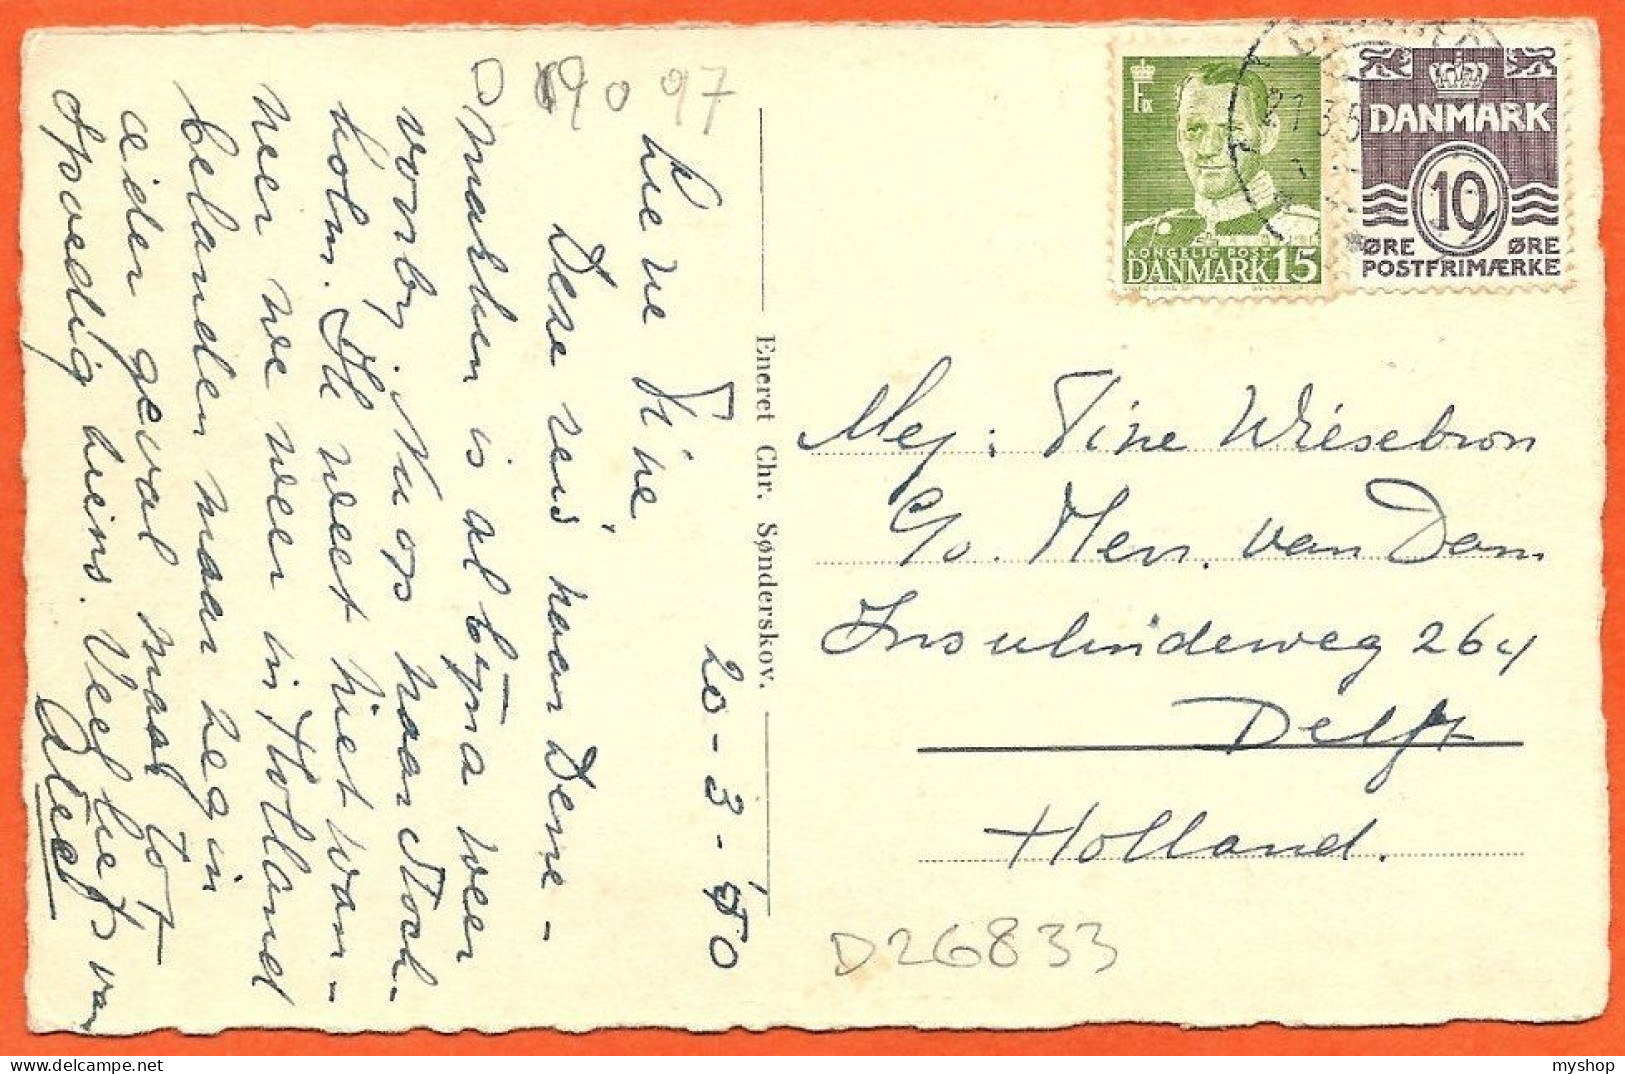 D 19097
20-3-'50
Lieve Tine
Deze reis naar Dene-
marken is al byna weer
voorby. Nu op naar Stock-
holm. Ik weet niet wan-
neer we weer in Holland
belanden maar zeg in
ieder geval maar tot
spoedig ziens. Veel liefs van
Alee
Eneret Chr. Sønderskov.
DANMARK 15
KONGELIG POST
DANMARK
10
ØRE ØRE
POSTFRIMÆRKE
21.3.5
Mej: Tine Wiesebron
c/o. Men. van Dam
Insulindeweg 264
Delft
Holland.
D26833
myshop